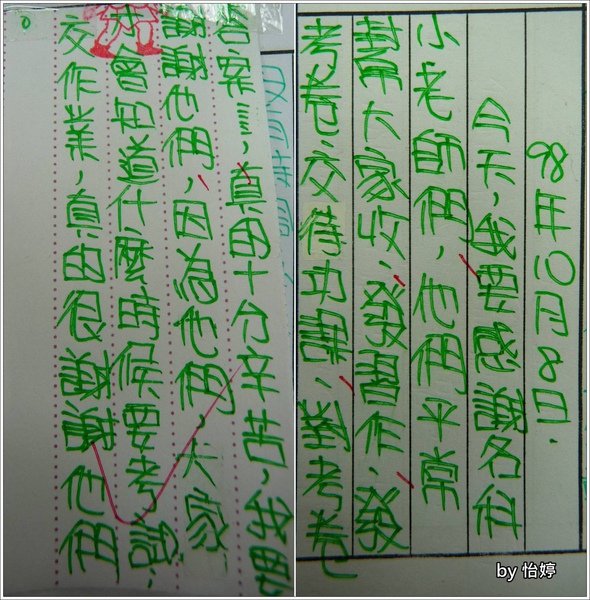 98年10月8日.
今天,我要感謝各科
小老師們,他們平常
幫大家收、發習作、發
考卷、交待功課、對考卷
答案……,真的十分辛苦,我
謝謝他們,因為他們,大家
才會知道什麼時候要考試、
交作業,真的很謝謝他們
by 怡婷